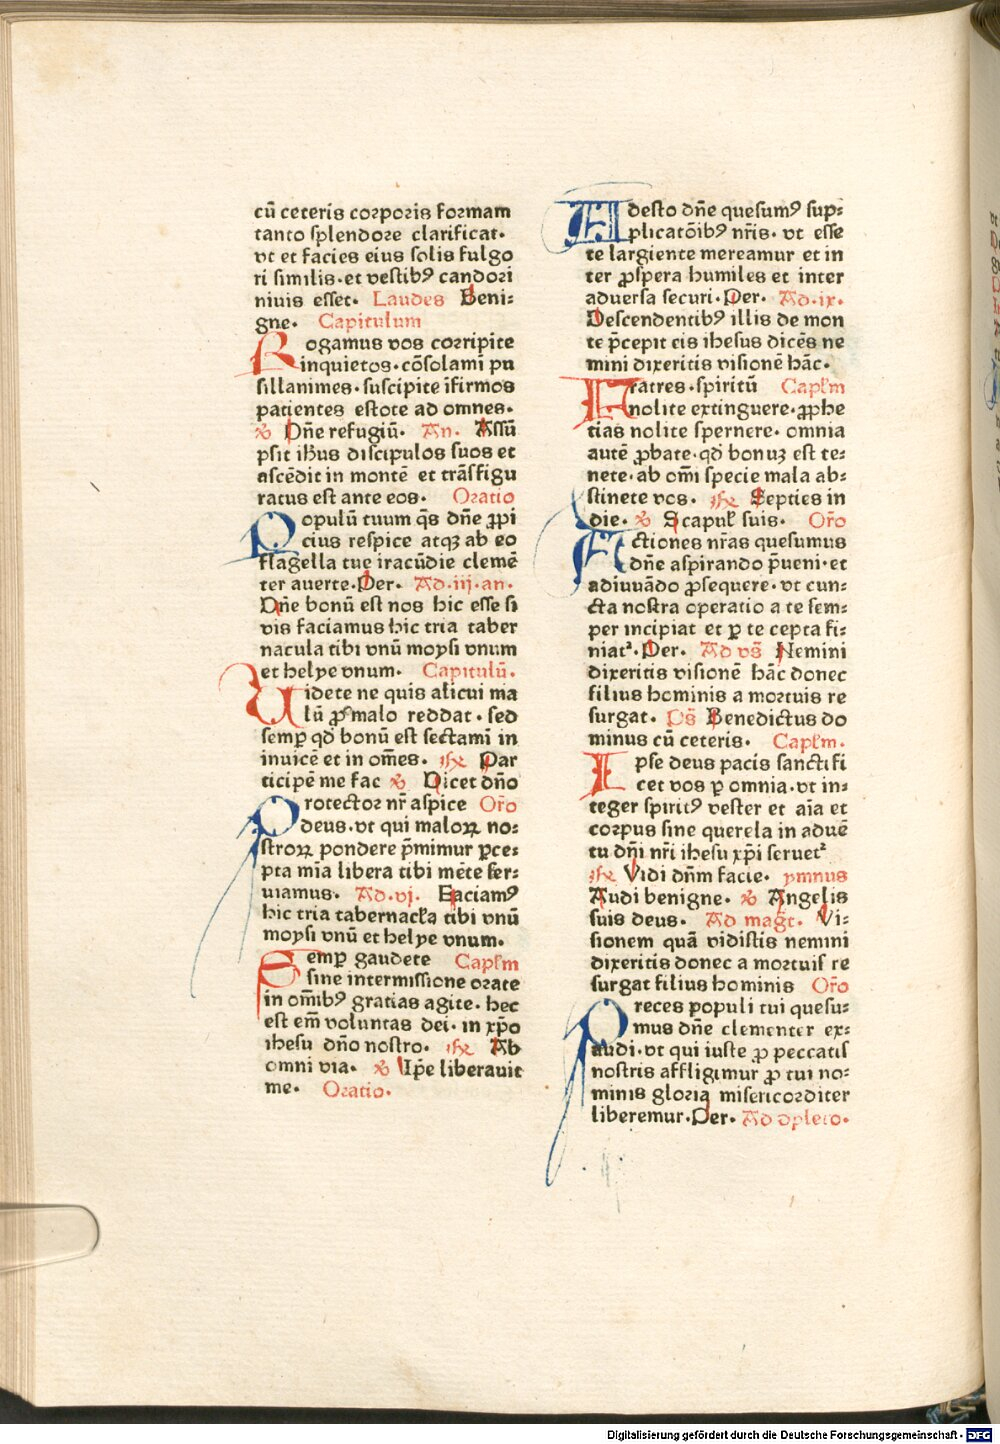 cū ceteris corporis formam
tanto splendore clarificat·
vt et facies eius solis fulgo
ri similis·et vestibꝰ candori
niuis esset· Laudes Beni⸗
gne· Capitulum
Rogamus vos corripite
inquietos·cōsolamī pu
sillanimes·suscipite īfirmos
patientes estote ad omnes·
℣ Dn̄e refugiū· An. Assū
psit ihūs discipulos suos et
ascēdit in montē et trāsfigu
ratus est ante eos· Oratio
Populū tuum q̄s dn̄e ꝓpi
cius respice atqꝫ ab eo
flagella tue iracūdie clemē
ter auerte·Per· Ad·iij·an·
Dn̄e bonū est nos hic esse si
vis faciamus hic tria taber
nacula tibi vnū moysi vnum
et helye vnum· Capitulū·
Uidete ne quis alicui ma
lū ꝓ malo reddat·sed
semꝑ qd̄ bonū est sectamī in
inuicē et in om̄es· ℟ Par
ticipē me fac ℣ Dicet dn̄o
Protector nr̄ aspice Or̄o
deus·vt qui maloꝝ no⸗
stroꝝ pondere p̄mimur ꝑce⸗
pta mīa libera tibi mēte ser⸗
uiamus· Ad·vj· Faciamꝰ
hic tria tabernacła tibi vnū
moysi vnū et helye vnum·
Semꝑ gaudete Capłm
sine intermissione orate
in om̄ibꝰ gratias agite·hec
est em̄ voluntas dei·in xp̄o
ihesu dn̄o nostro· ℟ Ab
omni via· ℣ Ip̄e liberauit
me· Oratio·
Adesto dn̄e quesumꝰ sup⸗
plicatōibꝰ nr̄is·vt esse
te largiente mereamur et in
ter ꝓspera humiles et inter
aduersa securi·Per· Ad·ix·
Descendentibꝰ illis de mon
te p̄cepit eis ihesus dicēs ne
mini dixeritis visionē hāc·
Fratres·spiritū Capłm
nolite extinguere·ꝓphe
tias nolite spernere·omnia
autē ꝓbate·qd̄ bonuꝫ est te⸗
nete·ab om̄i specie mala ab⸗
stinete vos· ℟ Septies in
die· ℣ Scapul̄ suis· Or̄o
Actiones nr̄as quesumus
dn̄e aspirando p̄ueni·et
adiuuādo ꝓsequere·vt cun⸗
cta nostra operatio a te sem⸗
per incipiat et ꝑ te cepta fi⸗
niat᷑·Per· Ad vs̄ Nemini
dixeritis visionē hāc donec
filius hominis a mortuis re
surgat· Ps̄ Benedictus do
minus cū ceteris· Capłm·
Ipse deus pacis sanctifi
cet vos ꝑ omnia·vt in⸗
teger spiritꝰ vester et aīa et
corpus sine querela in aduē
tu dn̄i nr̄i ihesu xp̄i seruet᷑
℟ Vidi dn̄m facie· ymnus
Audi benigne· ℣ Angelis
suis deus· Ad magt̄· Vi⸗
sionem quā vidistis nemini
dixeritis donec a mortuis re
surgat filius hominis Or̄o
Preces populi tui quesu⸗
mus dn̄e clementer ex⸗
audi·vt qui iuste ꝓ peccatis
nostris affligimur ꝓ tui no⸗
minis gloria misericorditer
liberemur·Per· Ad cpleto·
Digitalisierung gefördert durch die Deutsche Forschungsgemeinschaft - DFG